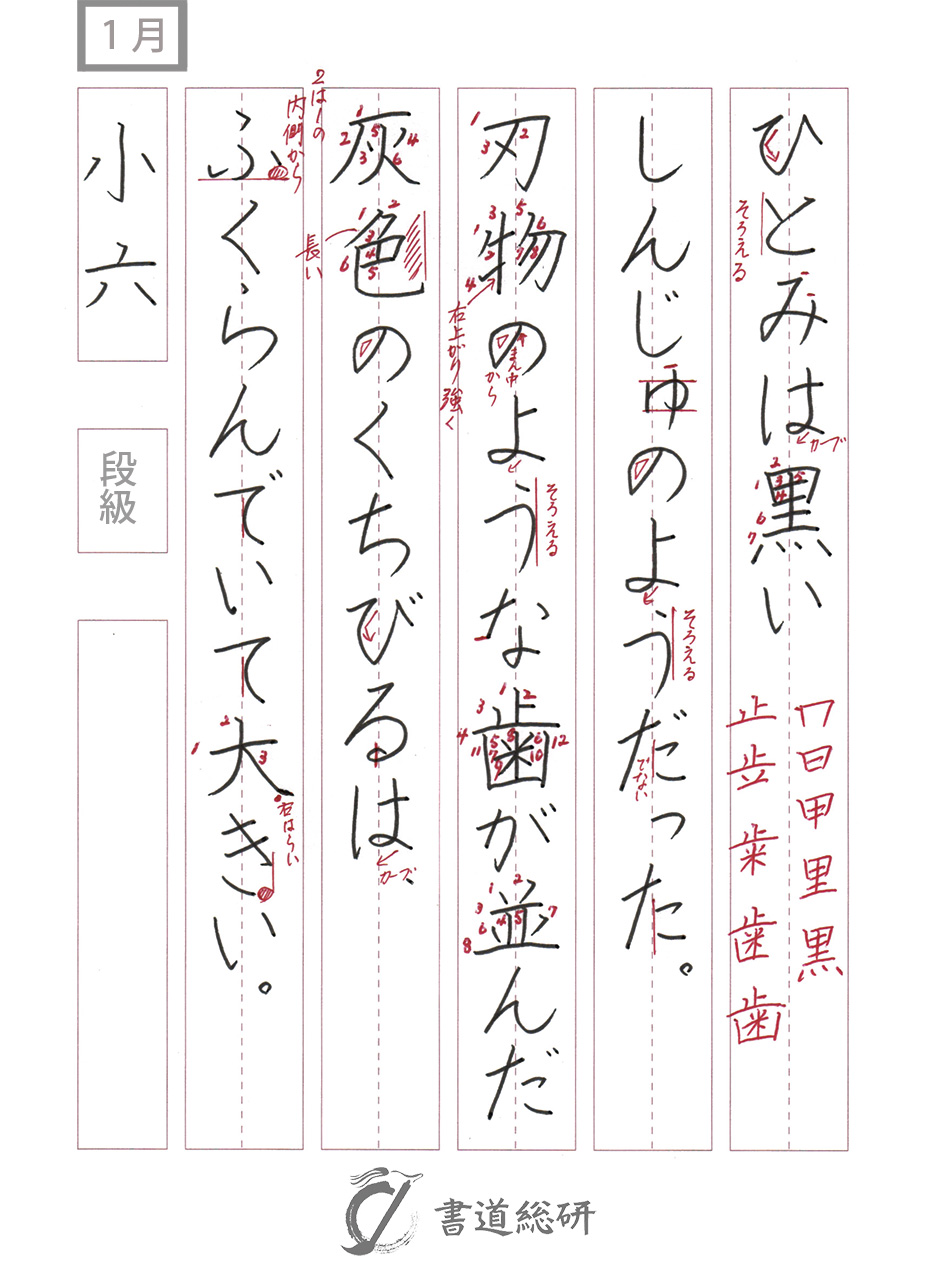 1月
ひとみは黒い
そろえる
カーブ
口日甲里黒
止歩歯歯
しんじゅのようだった。
そろえる
でない
刃物のような歯が並んだ
右上がり強く
まん中から
そろえる
灰色のくちびるは
長い
カーブ
ふくらんでいて大きい。
2は1の内側から
右はらい
小六
段級
書道総研